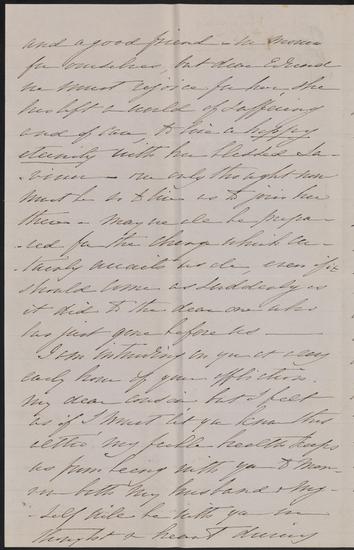 and a good friend - we mourn
for ourselves, but dear Edward
we must rejoice for her, she
has left a world of suffering
and of care, to live a happy
eternity with her blessed Sa-
viour - our only thought now
must be so to live as to join her
there - may we all be prepa-
-red for the change which cer-
tainly awaits us all, even if it
should come as suddenly as
it did to the dear one who
has just gone before us -
I am intruding on you at a very
early hour of your affliction
my dear cousin but I felt
as if I must let you know this
altho my feeble health keeps
us from being with you to mor-
row both my husband & my-
self will be with you in
thought & heart during